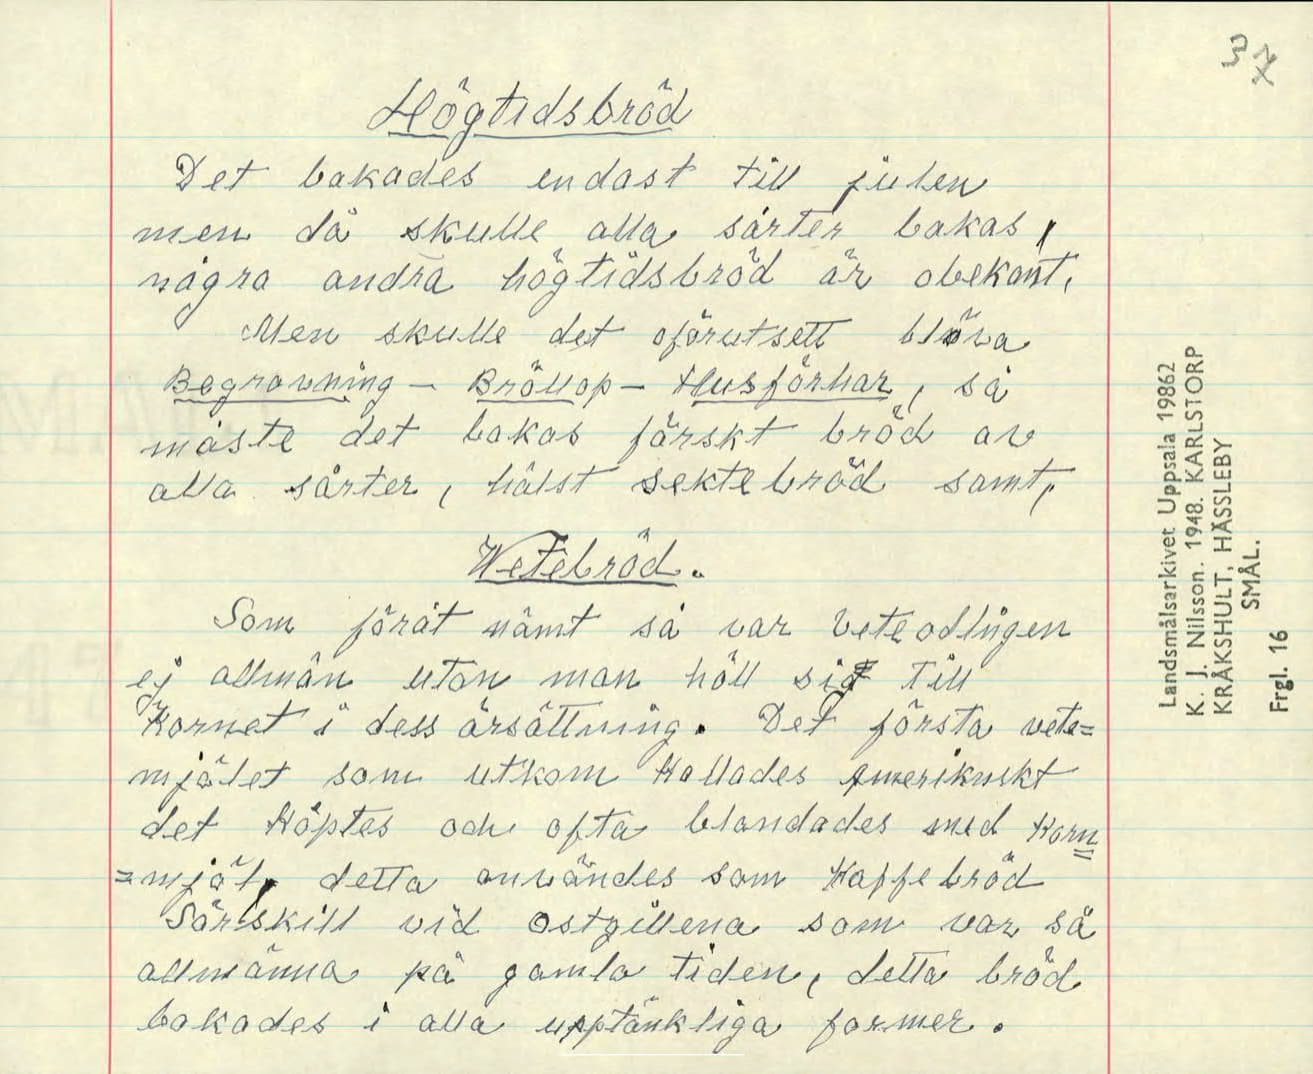 37
Högtidsbröd
Det bakades endast till julen
men då skulle alla sårter bakas,
några andra högtidsbröd är obekant.
Men skulle det oförutsett blöva
Begravning – Bröllop – Husförhar, så
måste det bakas färskt bröd av
alla sårter, hälst sektebröd samt,
Vetebröd.
Som förut nämt så var Veteodlingen
ej allmän utan man höll sig till
Kornet i dess ärsättning. Det första vete=
mjölet som utkom Kallades Amerikuskt
det Köptes och ofta blandades med Korn
=mjöl, detta användes som Kaffebröd
Särskill vid Ostgillena som var så
allmänna på gamla tiden, detta bröd
bakades i alla upptänkliga former.
Landsmålsarkivet Uppsala 19862
K. J. Nilsson. 1948. KARLSTORP
KRÅKSHULT, HÄSSLEBY
SMÅL.
Frgl. 16